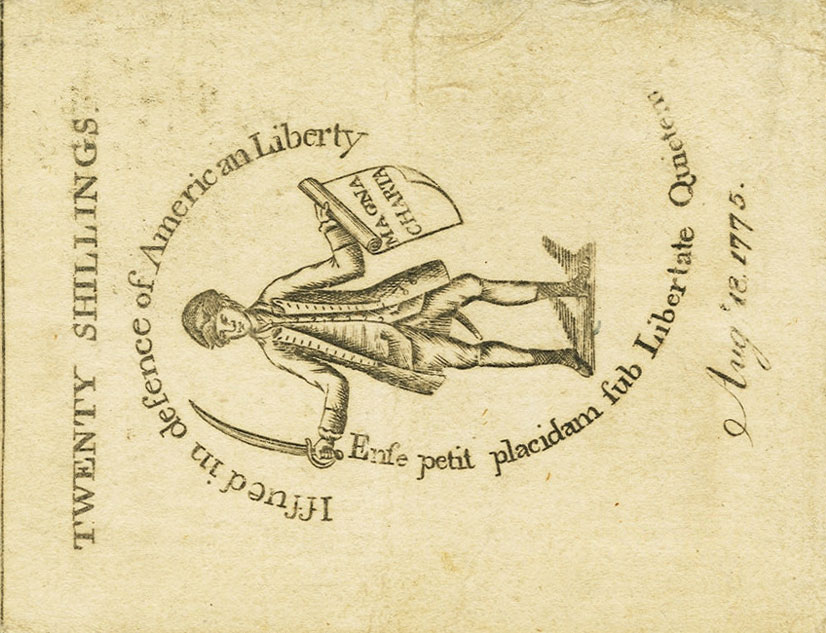 TWENTY SHILLINGS.
Iſſued in defence of American Liberty
MAGNA
CHARTA
Enſe petit placidam ſub Libertate Quietem
Augt 18. 1775.